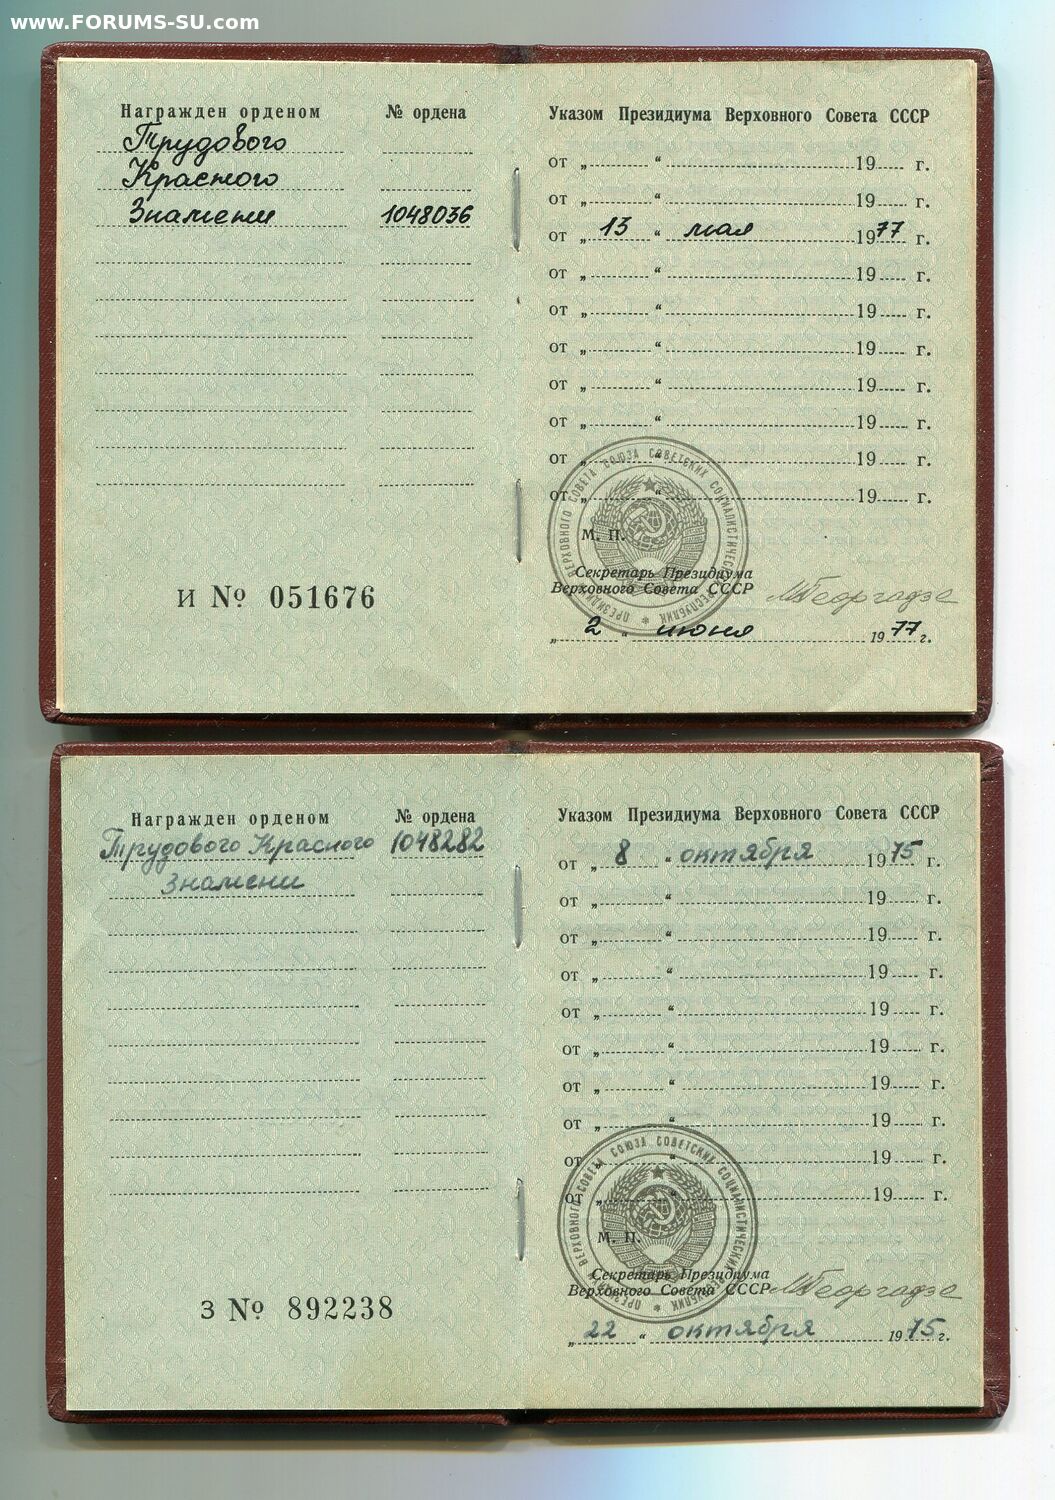 www.FORUMS-SU.com
Награжден орденом № ордена
Трудового
Красного
Знамени 1048036
И № 051676
Указом Президиума Верховного Совета СССР
от „ “ 19 г.
от „ “ 19 г.
от „ 13 “ мая 1977 г.
от „ “ 19 г.
от „ “ 19 г.
от „ “ 19 г.
от „ “ 19 г.
от „ “ 19 г.
от „ “ 19 г.
от „ “ 19 г.
ПРЕЗИДИУМ ВЕРХОВНОГО СОВЕТА СОЮЗА СОВЕТСКИХ СОЦИАЛИСТИЧЕСКИХ РЕСПУБЛИК
М. П.
Секретарь Президиума
Верховного Совета СССР МГеоргадзе
„ 2 “ июня 1977 г.
Награжден орденом № ордена
Трудового Красного 1048282
Знамени
З № 892238
Указом Президиума Верховного Совета СССР
от „ 8 “ октября 1975 г.
от „ “ 19 г.
от „ “ 19 г.
от „ “ 19 г.
от „ “ 19 г.
от „ “ 19 г.
от „ “ 19 г.
от „ “ 19 г.
от „ “ 19 г.
от „ “ 19 г.
ПРЕЗИДИУМ ВЕРХОВНОГО СОВЕТА СОЮЗА СОВЕТСКИХ СОЦИАЛИСТИЧЕСКИХ РЕСПУБЛИК
М. П.
Секретарь Президиума
Верховного Совета СССР МГеоргадзе
„ 22 “ октября 1975 г.